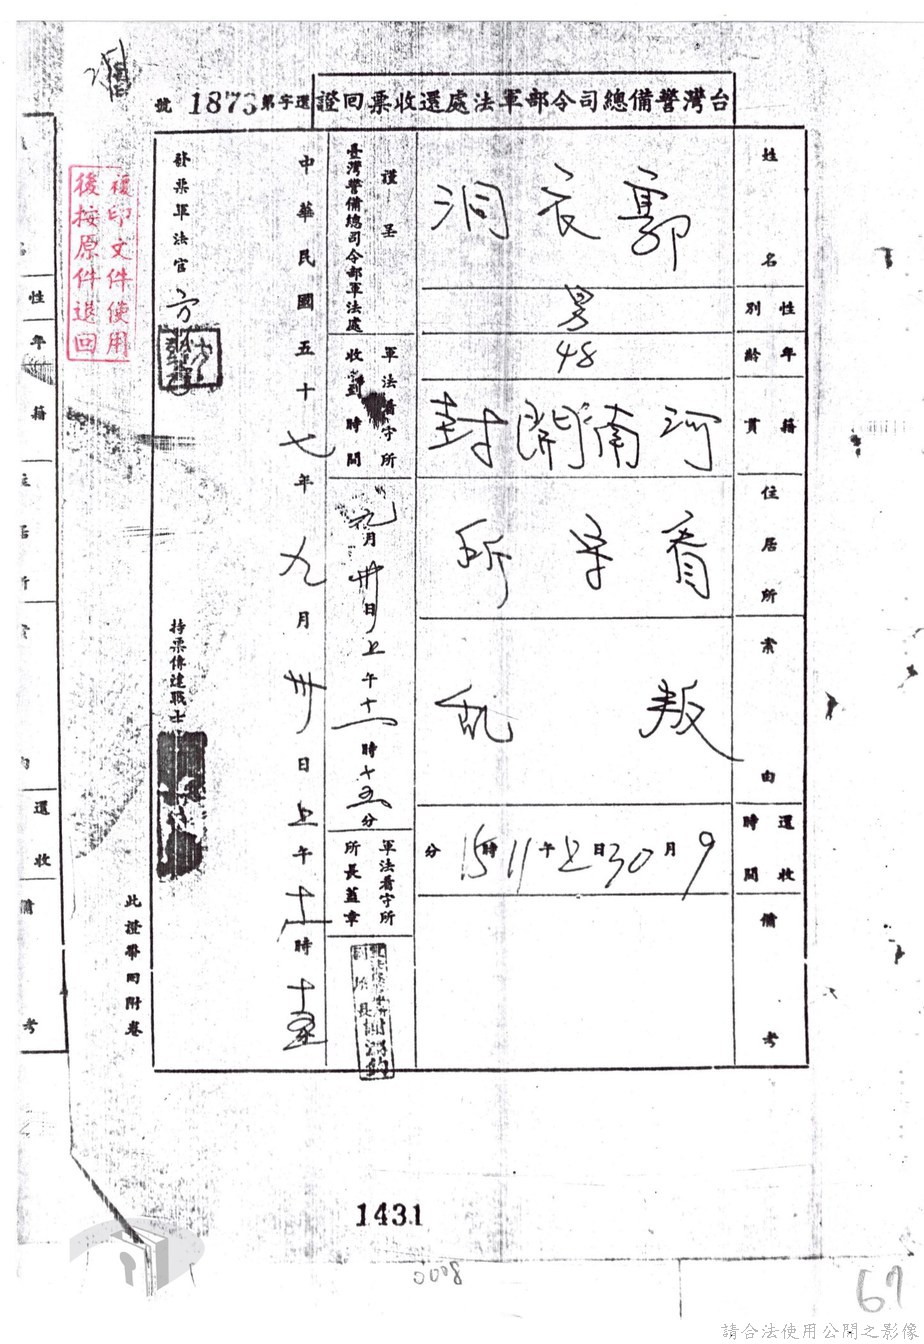 台灣警備總司令部軍法處還收票回證
還字第1873號
姓名
郭衣洞
性別
男
年齡
48
籍貫
河南開封
住居所
看守所
案由
叛乱
還收時間
9月30日上午11時15分
備考
謹呈
臺灣警備總司令部軍法處
軍法看守所收到時間
九月卅日上午十一時十五分
軍法看守所所長蓋章
中華民國五十七年九月卅日上午十一時十五
發票軍法官
方
持票傳達職士
此證帶回附卷
複印文件使用
後按原件退回
性
年
籍
由
還收
備
考
1431
0008
67
請合法使用公開之影像